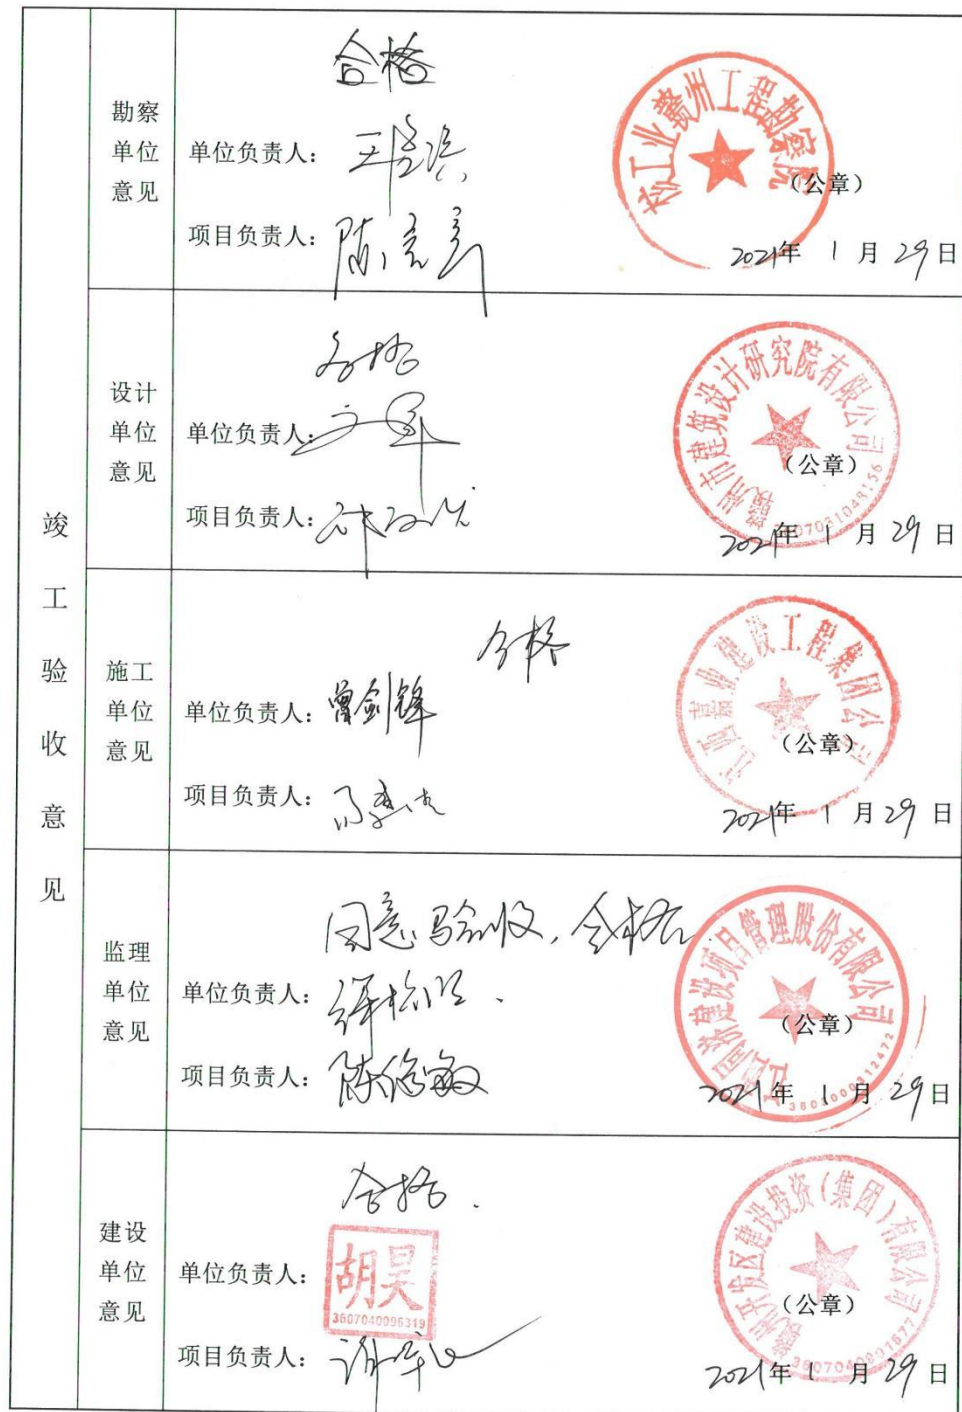 竣工验收意见
勘察单位意见
合格
单位负责人：
项目负责人：
核工业赣州工程勘察院
（公章）
2021年 1 月 29 日
设计单位意见
合格
单位负责人：
项目负责人：
赣州市建筑设计研究院有限公司
（公章）
2021年 1 月 29 日
施工单位意见
合格
单位负责人：曾剑锋
项目负责人：
江西嘉业建设工程集团公司
（公章）
2021年 1 月 29 日
监理单位意见
同意验收，合格.
单位负责人：
项目负责人：陈俊敏
建设项目管理股份有限公司
（公章）
2021年 1 月 29 日
建设单位意见
合格.
单位负责人：
胡昊
3607040096319
项目负责人：
赣州开发区建设投资（集团）有限公司
（公章）
2021年 1 月 29 日